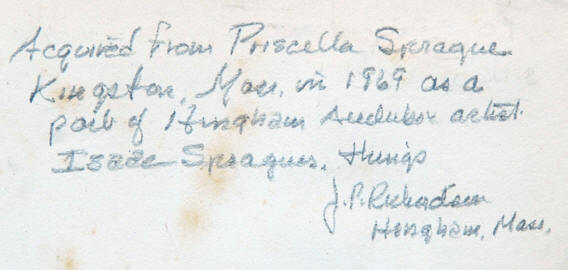 Acquired from Priscella Sprague
Kingston, Mass, in 1969 as a
part of Hingham Audubon artist
Isaac Spragues, things
J. P. Richardson
Hingham, Mass,